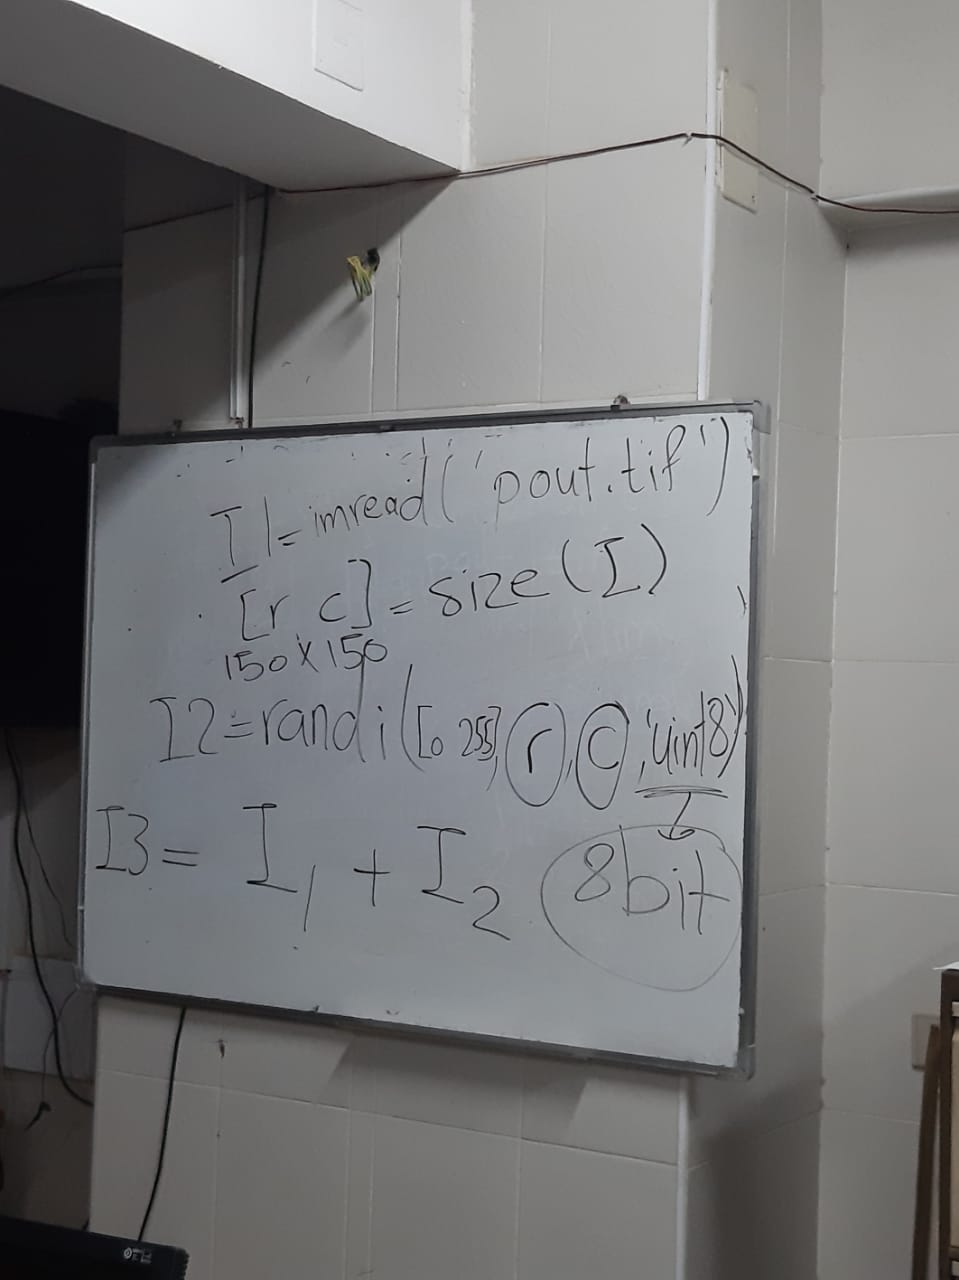 I1=imread('pout.tif')
[r c]=size(I)
150x150
I2=randi([0 255],r,c,'uint8')
I3= I1 + I2
8bit